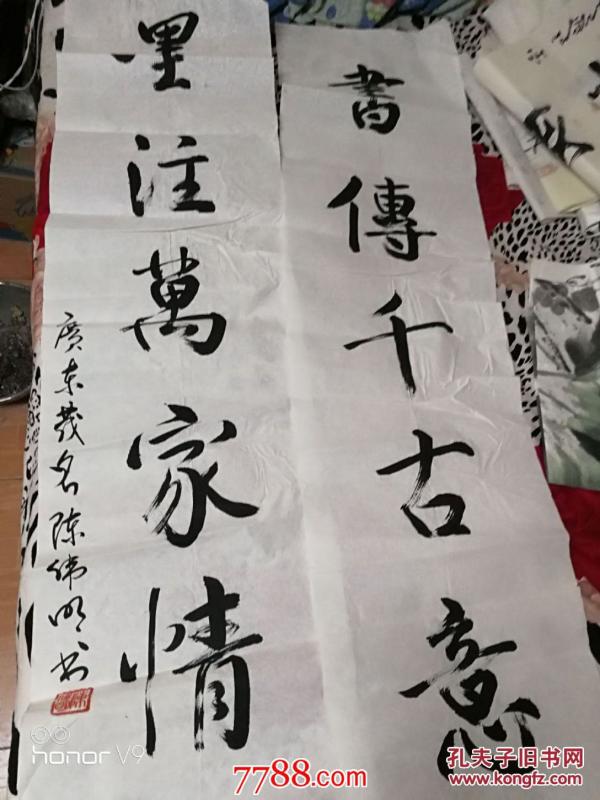 書傳千古意
墨注萬家情
廣东茂名陈伟明书
honor V9
7788.com
孔夫子旧书网
www.kongfz.com